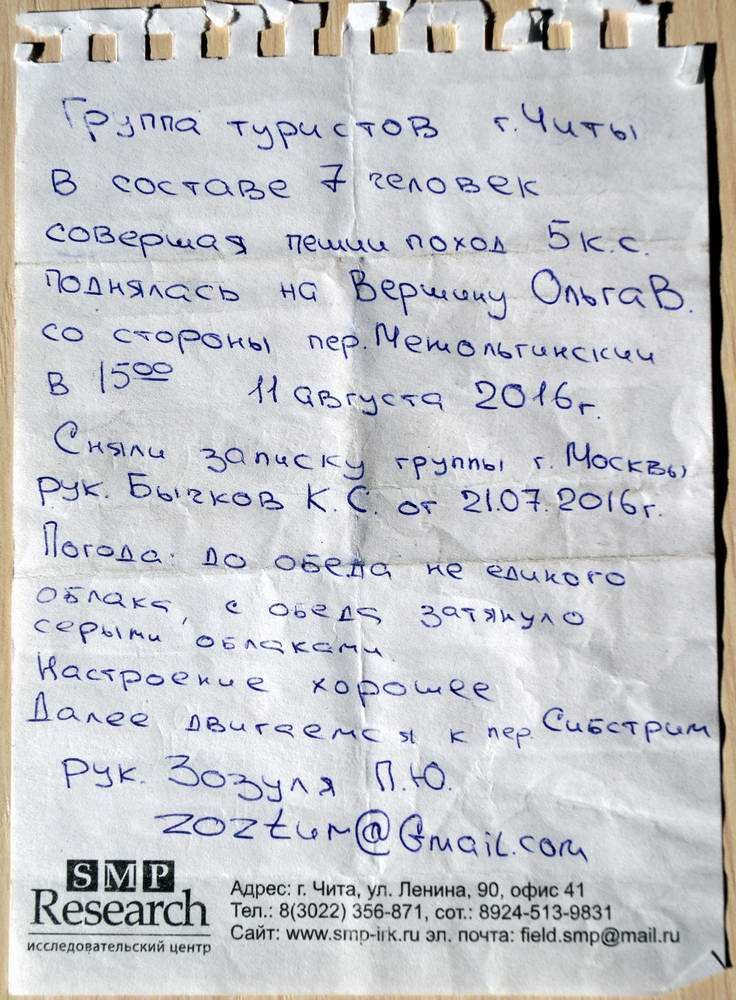 Группа туристов г. Читы
В составе 7 человек
совершая пеший поход 5 к.с.
поднялась на Вершину Ольга В.
со стороны пер. Межольгинский
в 15⁰⁰ 11 августа 2016 г.
Сняли записку группы г. Москвы
рук. Бычков К.С. от 21.07.2016 г.
Погода: до обеда не единого
облака, с обеда затянуло
серыми облаками.
Настроение хорошее
Далее двигаемся к пер. Сибстрим
рук. Зозуля П.Ю.
@Gmail.com
SMP
Research
исследовательский центр
Адрес: г. Чита, ул. Ленина, 90, офис 41
Тел.: 8(3022) 356-871, сот.: 8924-513-9831
Сайт: www.smp-irk.ru эл. почта: field.smp@mail.ru